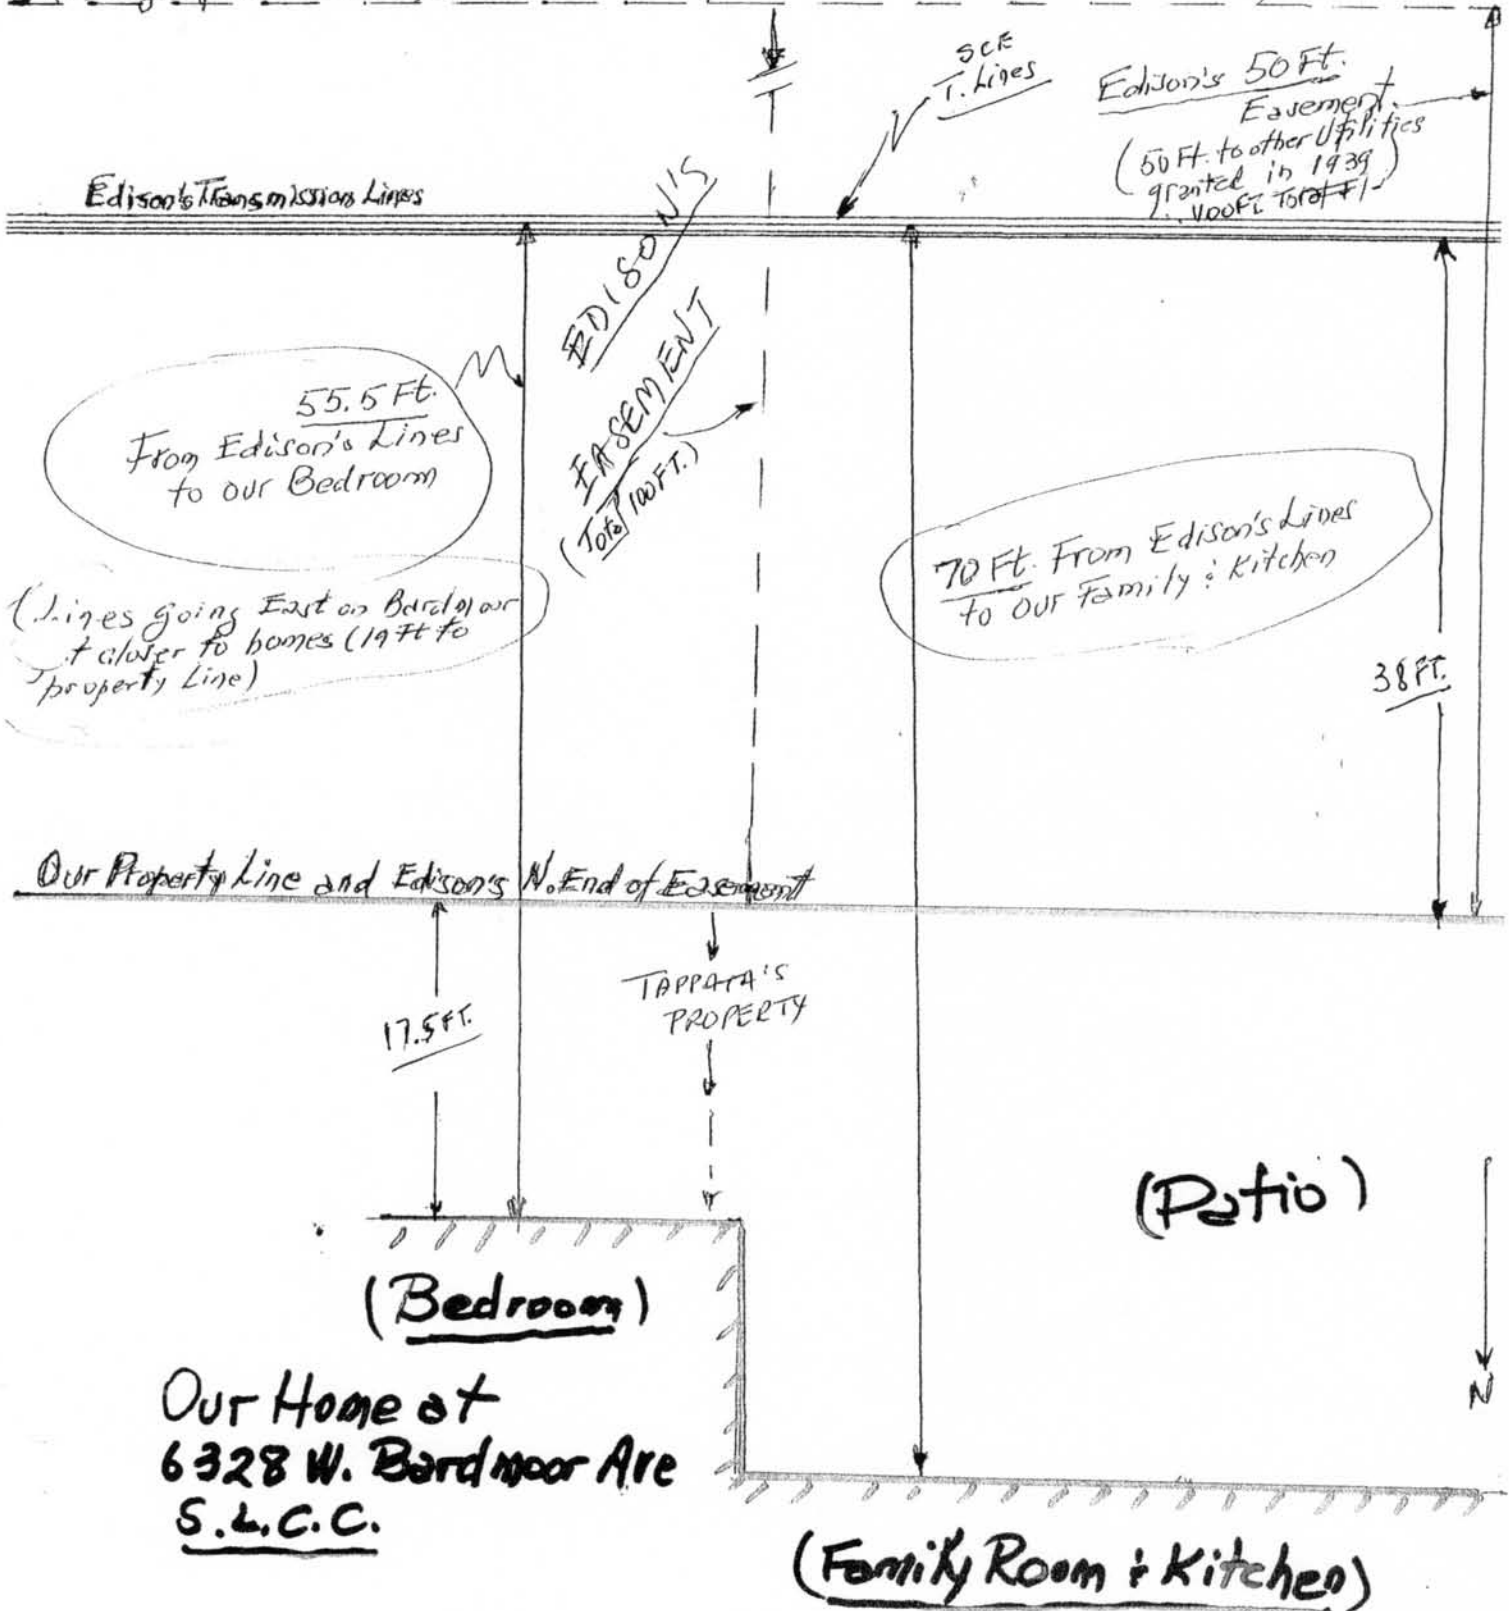 SCE
T. Lines
Edison's 50 Ft.
Easement
(50 Ft. to other Utilities
granted in 1939)
Total
Edison's Transmission Lines
EDISON'S
EASEMENT
(Total 100 FT.)
55.5 Ft.
From Edison's Lines
to our Bedroom
(Lines going East on Bardmoor
closer to homes (19 Ft to
property Line)
70 Ft. From Edison's Lines
to Our Family & Kitchen
38 FT.
Our Property Line and Edison's N. End of Easement
17.5 FT.
TAPPATA'S
PROPERTY
(Patio)
N
(Bedroom)
Our Home at
6328 W. Bardmoor Ave
S.L.C.C.
(Family Room & Kitchen)